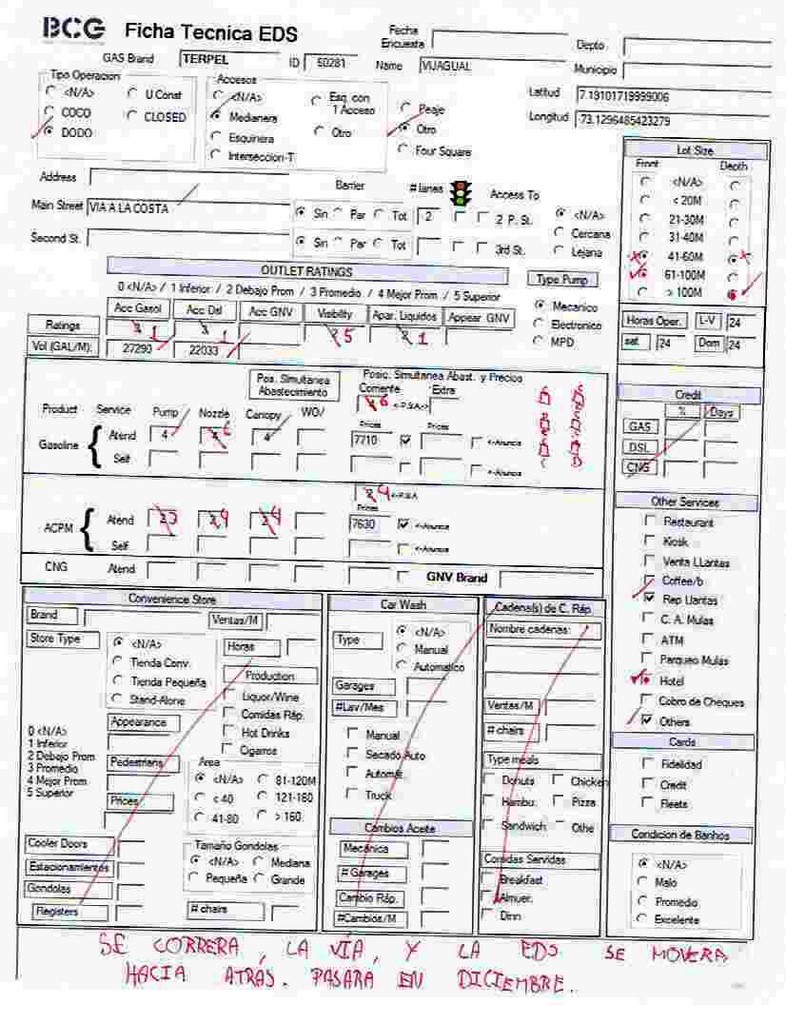 BCG Ficha Tecnica EDS
Fecha Encuesta
Depto
GAS Brand TERPEL ID 50281 Name VIJAGUAL Municipio
Tipo Operacion
<N/A> U.Const
COCO CLOSED
DODO
Accesos
<N/A> Esq. con 1 Acceso Peaje
Medianera Otro Otro
Esquinera Four Square
Interseccion-T
Latitud 7.19101719999006
Longitud -73.1296485423279
Lot Size
Front Depth
<N/A>
< 20M
21-30M
31-40M
41-60M
61-100M
> 100M
Address
Barrier # lanes Access To
Main Street VIA A LA COSTA Sin Par Tot 2 2 P. St. <N/A>
Cercana
Second St. Sin Par Tot 3rd St. Lejana
OUTLET RATINGS
0 <N/A> / 1 Inferior / 2 Debajo Prom / 3 Promedio / 4 Mejor Prom / 5 Superior
Acc Gasol Acc Dsl Acc GNV Visibility Apar. Liquidos Appear GNV
Ratings 1 1 5 1
Vol (GAL/M): 27293 22033
Type Pump
Mecanico
Electronico
MPD
Horas Oper. L-V 24
sat 24 Dom 24
Pos. Simultanea Abastecimiento
Posic. Simultanea Abast. y Precios
Corriente Extra
6 <-P.S.A->
Product Service Pump Nozzle Canopy WO/ Prices Prices
Gasoline Atend 4 6 4 7710 <-Anuncia
Self <-Anuncia
4 <-P.S.A
Prices
ACPM Atend 3 4 4 7630 <-Anuncia
Self <-Anuncia
CNG Atend GNV Brand
Credit
% /Days
GAS
DSL
CNG
Other Services
Restaurant
Kiosk
Venta LLantas
Coffee/b
Rep Llantas
C. A. Mulas
ATM
Parqueo Mulas
Hotel
Cobro de Cheques
Others
Cards
Fidelidad
Credit
Fleets
Condicion de Banhos
<N/A>
Malo
Promedio
Excelente
Convenience Store
Brand Ventas/M
Store Type
<N/A>
Tienda Conv.
Tienda Pequeña
Stand-Alone
Horas
Production
Liquor/Wine
Comidas Ráp.
Hot Drinks
Cigarros
Appearance
0 <N/A>
1 Inferior
2 Debajo Prom
3 Promedio
4 Mejor Prom
5 Superior
Pedestrians
Prices
Area
<N/A> 81-120M
< 40 121-160
41-80 > 160
Cooler Doors
Estacionamientos
Gondolas
Registers
Tamaño Gondolas
<N/A> Mediana
Pequeña Grande
# chairs
Car Wash
Type
<N/A>
Manual
Automatico
Garages
#Lav/Mes
Manual
Secado Auto
Automát
Truck
Cambios Aceite
Mecánica
# Garages
Cambio Ráp.
#Cambios/M
Cadena(s) de C. Ráp.
Nombre cadenas:
Ventas/M
# chairs
Type meals
Donuts Chicken
Hambu. Pizza
Sandwich Othe
Comidas Servidas
Breakfast
Almuer.
Dinn
SE CORRERA, LA VÍA, Y LA EDS SE MOVERA
HACIA ATRAS. PASARA EN DICIEMBRE.